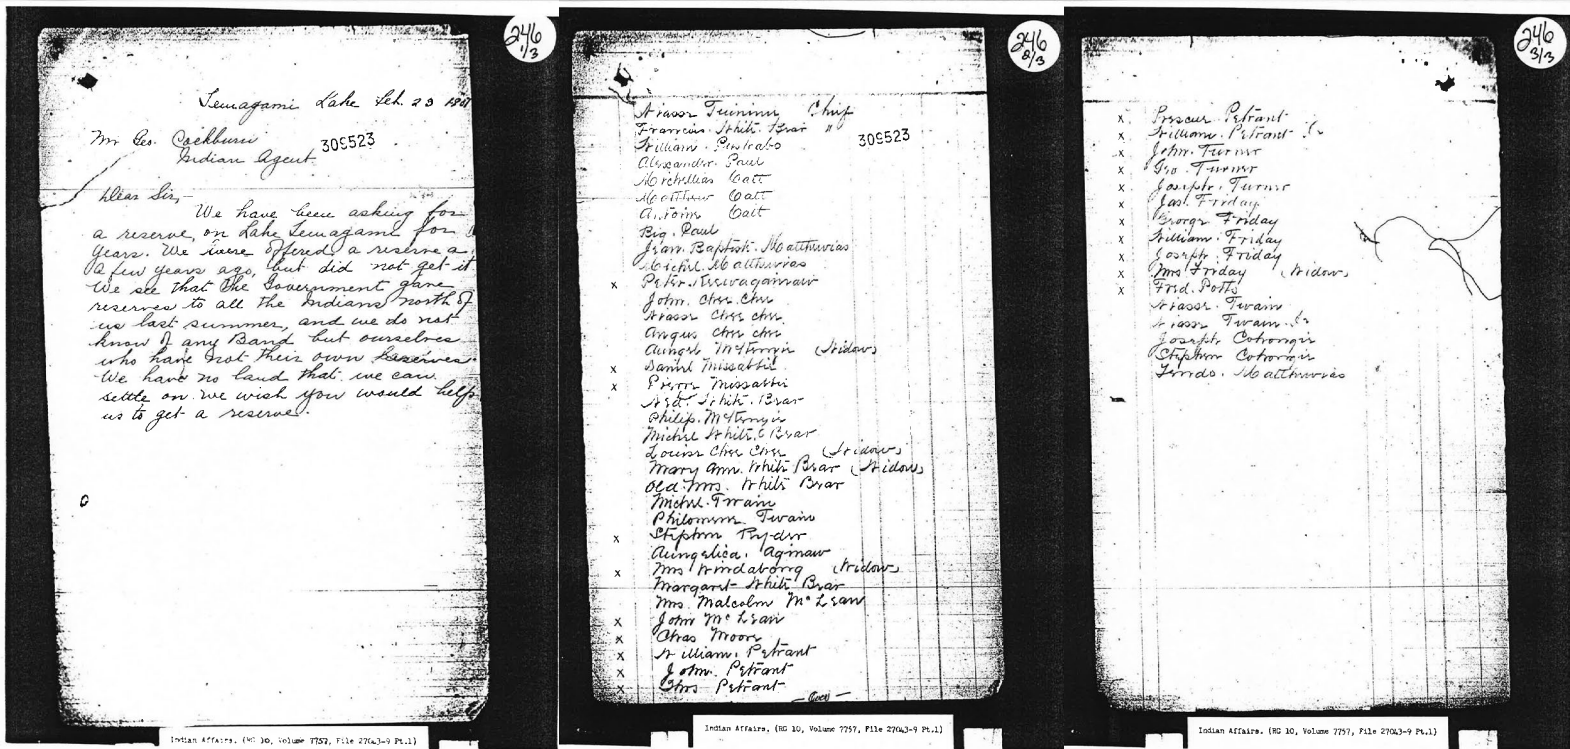 246
1/3
Temagami Lake Feb. 23
Mr Geo. Cockburn
309523
Indian Agent
Dear Sir,-
We have been asking for
a reserve, on Lake Temagami for
years. We were offered a reserve a
a few years ago, but did not get it
We see that the Government gave
reserves to all the Indians north of
us last summer, and we do not
know of any Band but ourselves
who have not their own Reserves.
We have no land that we can
settle on. we wish you would help
us to get a reserve.
Indian Affairs. (RG 10, Volume 7757, File 27043-9 Pt.1)
246
2/3
Chief
Francois White Bear "
309523
William
Alexander Paul
Catt
Matthew Catt
Antoine Catt
Big Paul
Jean Baptist Matthewias
Michel Matthewias
x Peter
John. Chee Chee
Chee Chee
Angus Chee chee
(Widow)
x Daniel Missabbi
x Pierre Missabbi
White Bear
Philip
Michel White Bear
Louise Chee Chee (Widow)
Mary Ann. White Bear (Widow)
Old Mrs. White Bear
Michel Twain
Philomene Twain
x Stephen Ryder
Aungelica. Aginaw
x Mrs Windabong (Widow)
Margaret White Bear
Mrs. Malcolm McLean
x John McLean
x Chas Moore
x William. Petrant
x John. Petrant
x Petrant
— (over) —
Indian Affairs. (RG 10, Volume 7757, File 27043-9 Pt.1)
246
3/3
x Petrant
x William. Petrant Jr
x John. Turner
x Geo. Turner
x Joseph. Turner
x Jas. Friday
x George Friday
x William. Friday
x Joseph. Friday
x Mrs Friday (Widow)
x Fred. Potts
Twain
Twain Jr
Joseph Cotongie
Stephen Cotongie
Matthewias
Indian Affairs. (RG 10, Volume 7757, File 27043-9 Pt.1)